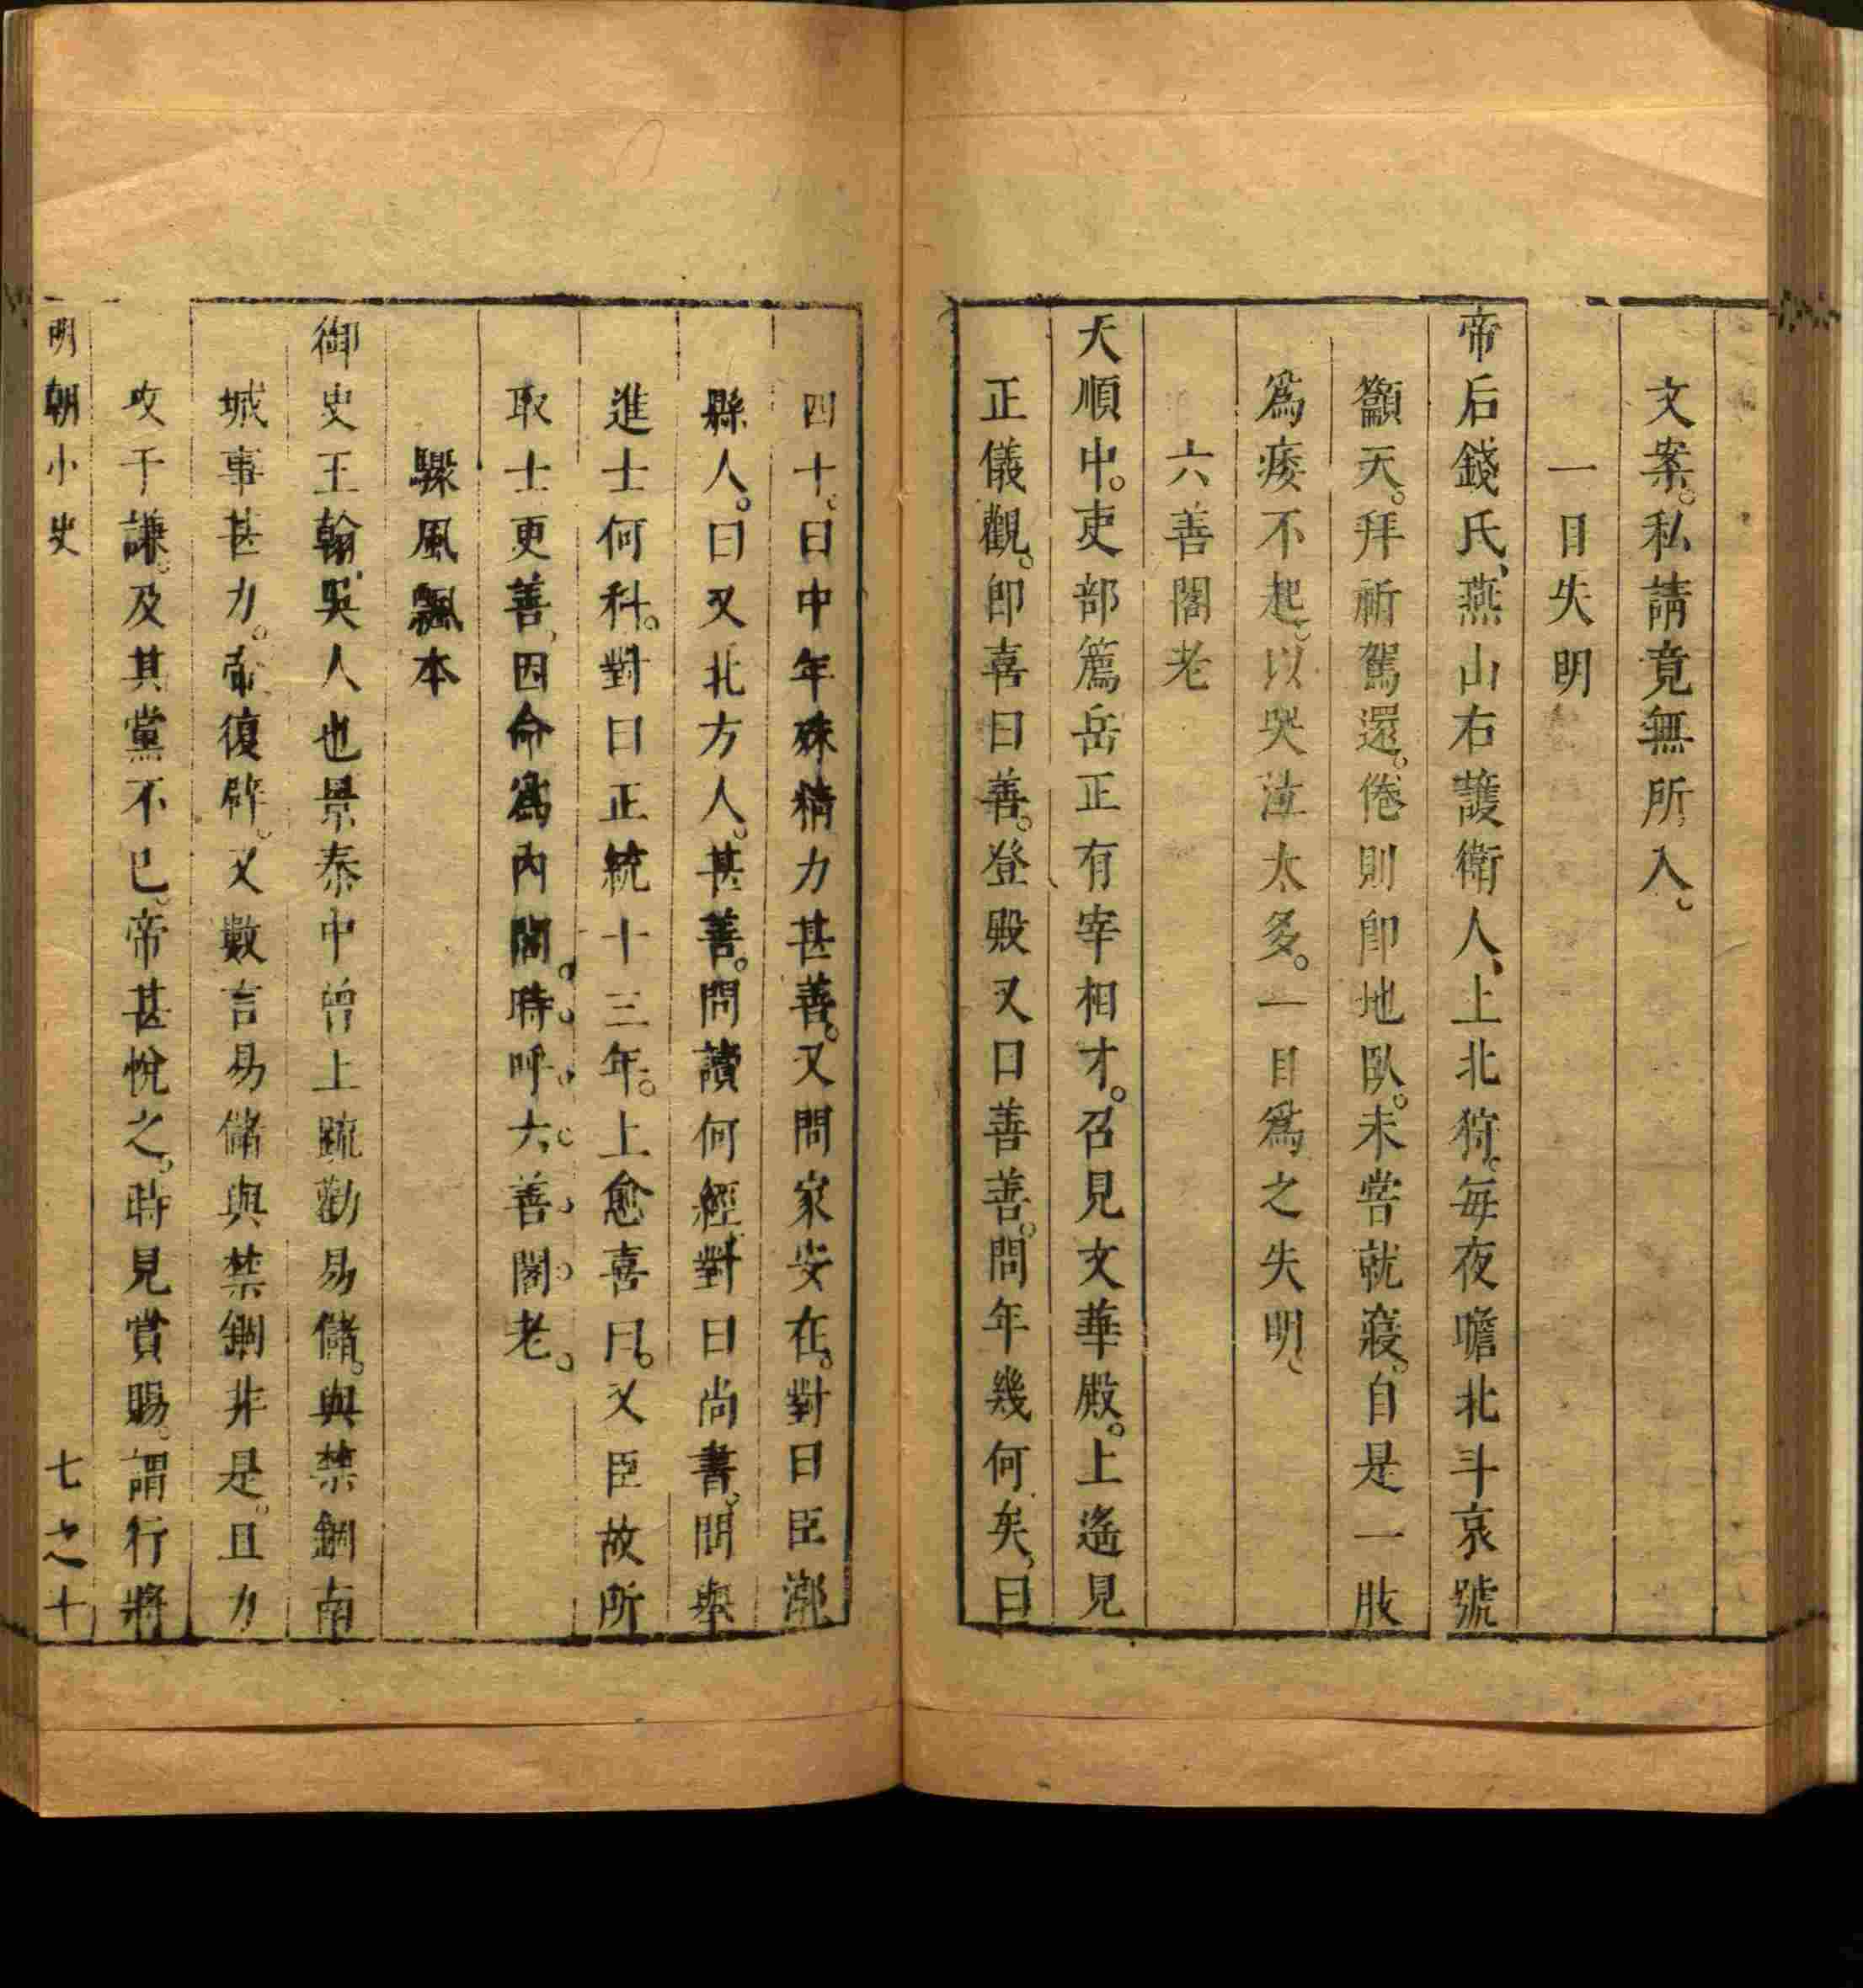 文案。私請竟無所入。
一目失明
帝后錢氏、燕山右護衛人、上北狩。每夜瞻北斗哀號
籲天。拜祈駕還。倦則卽地臥。未嘗就寢。自是一肢
爲痿不起。以哭泣太多。一目爲之失明。
六善閣老
天順中。吏部薦岳正有宰相才。召見文華殿。上遙見
正儀觀。卽喜曰善。登殿又曰善善。問年幾何矣、曰
四十。曰中年殊精力甚善。又問家安在。對曰臣漷
縣人。曰又北方人。甚善。問讀何經對曰尚書。問舉
進士何科。對曰正統十三年。上愈喜曰。又臣故所
取士更善、因命爲內閣。時呼六善閣老。
驟風飄本
御史王翰、吳人也景泰中曾上疏勸易儲。與禁錮南
城事甚力。帝復辟。又數言易儲與禁錮非是。且力
攻于謙。及其黨不已。帝甚悅之。時見賞賜。謂行將
明朝小史　七之十